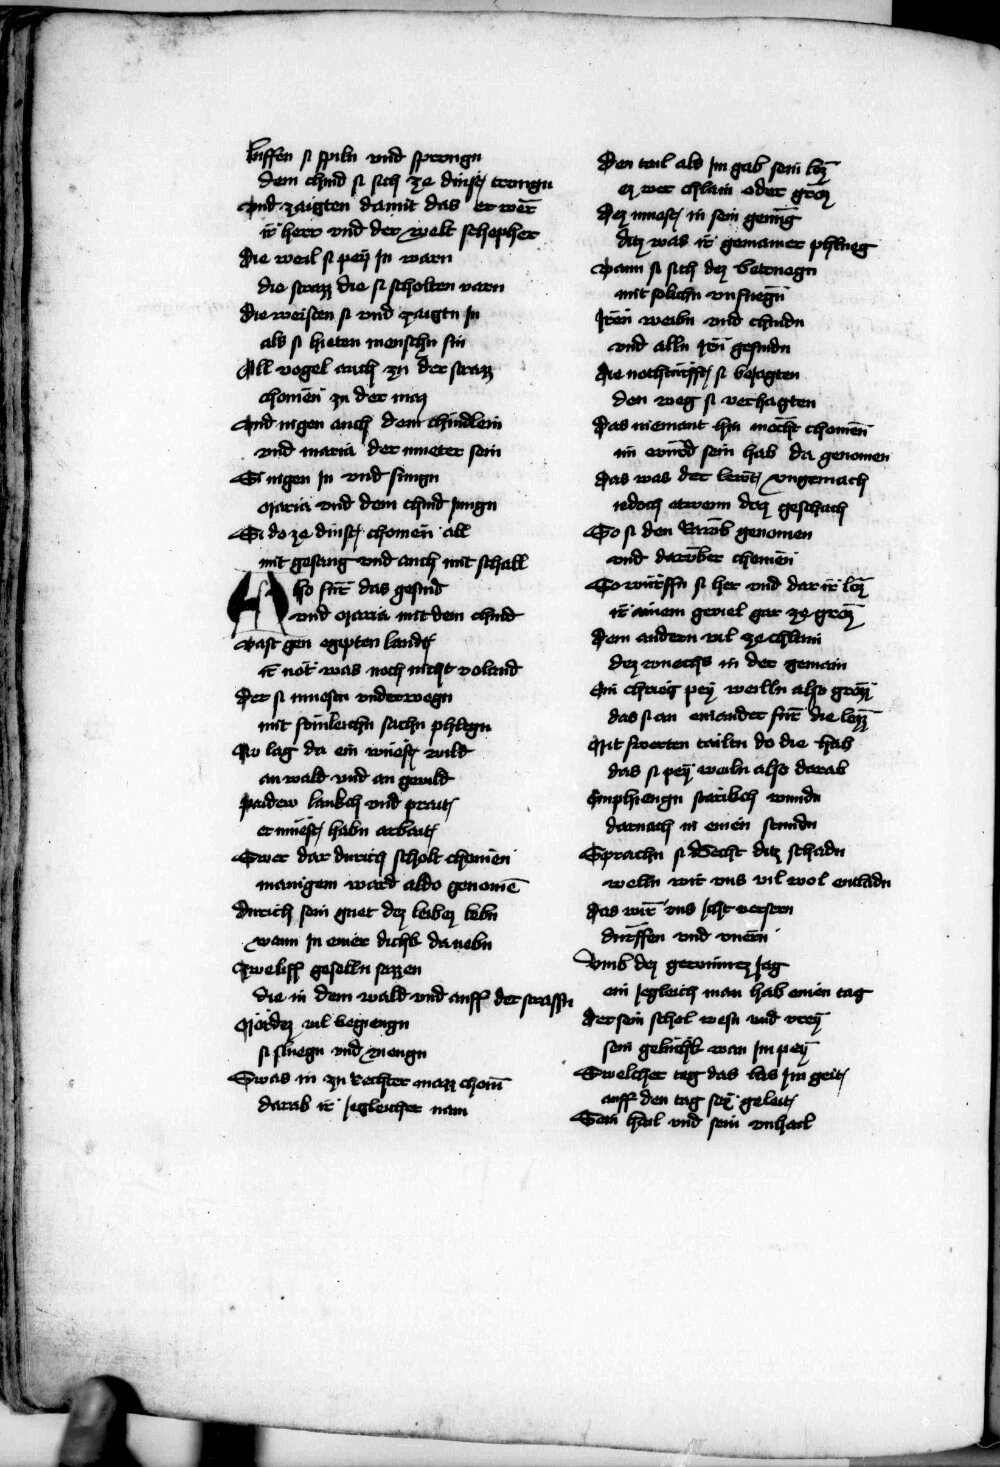 Luffen si spiln vnd sprongn
dem chind si sich ze dinst trongn
Vnd zaigten damit das er wer̄
ir herr vnd der welt schepher
Die weil si peÿ In warn
die strazz die si scholten varn
Die weisten si vnd zaigtn In
als si hieten menschn sin
All vogel auch zu der strazz
chomen̄ zu der maz
Vnd nigen auch dem chindlein
vnd maria der mueter sein
Si nigen In vnd sungn
Maria vnd dem chind Iungn
Si do ze dinst chomen̄ all
mit gesang vnd auch mit schall
Also fur das gesind
vnd Maria mit dem chind
Vast gen egipten landt
ir not was noch nicht volend
Der si muesen vnderwegn
mit soleichn sachn phlegn
Nv lag da ein wuest wild
an wald vnd an geuild
Paidew lankch vnd prait
er muest habn arbait
Swer dar durich scholt chomen̄
manigem ward aldo genomē
Durich sein guet dez leibez lebn
wann In einer dickh da nebn
Zweliff geselln sazzen
die in dem wald vnd auff der strassn
Mordez vil begiengn
si sluegn vnd viengn
Swas in zu rechter mazz chom̄
darab ir Iegleicher nam
Den tail als Im gab sein loz̄
ez wer chlain oder groz̄
Dez muest in sein genug
ditz was ir gemainer phlueg
Wann si sich dez betruegn
mit solichn vnfuegn̄
Iren̄ weibn vnd chindn
vnd alln Irn̄ gesindn
Die nothturfft si beiagten
den weg si verhagten
Das niemant hin mocht chomen̄
im wurd sein hab da genomen
Das was der lewt vngemach
iedoch etwenn daz geschach
So si den Rawb genomen
vnd darvber chomen̄
So wurffn si her vnd dar ir loz̄
ir ainem geuiel gar ze groz̄
Dem andern vil ze chlain
dez wuechs in der gemain
Ein chrieg peÿ weilln also groz̄
das si an einander fur die loz̄z
Mit swerten tailtn do die hab
das si peÿ weiln also darab
Emphiengn starikch wundn
darnach in einen stundn
Sprachn si Secht ditz schadn
welln wir vns vil wol entladn
Das wir vns Icht versern
durffen vnd vnern̄
Vmb dez gewinnez Iag
ein Iegleich man hab einen tag
Der sein schol wesn vnd vreÿ
sein gelukch wan Im peÿ
Swelcher teg das las Im geit
auff den tag seÿ geleit
Sein hail vnd sein vnhail